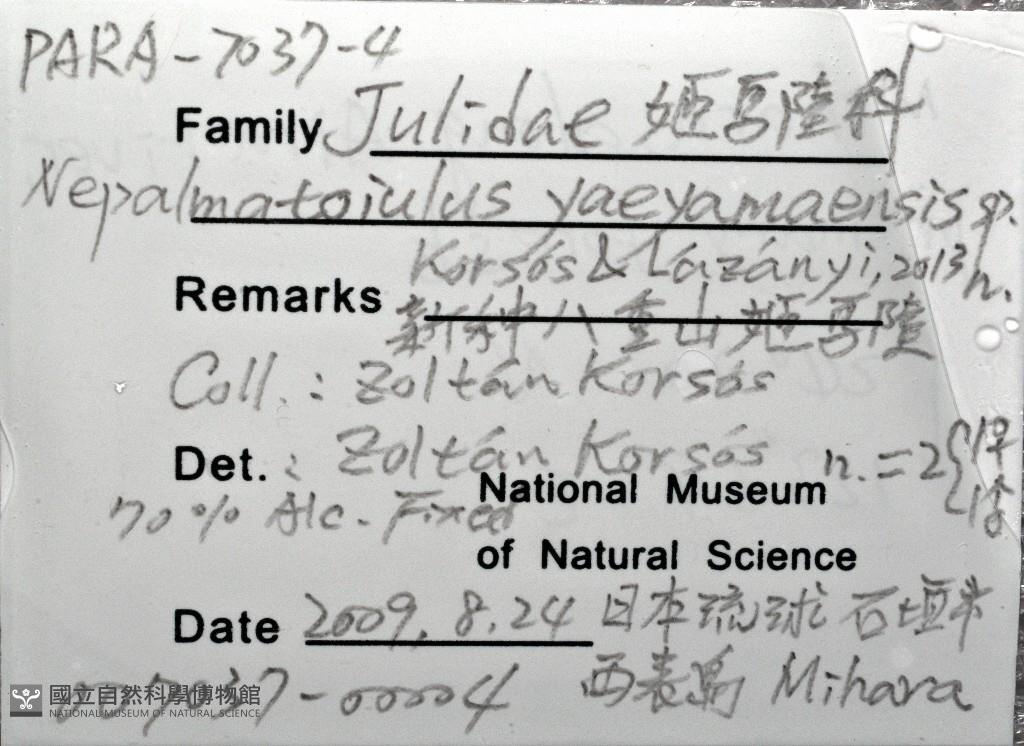 PARA-7037-4
Family Julidae 姬馬陸科
Nepalmatoiulus yaeyamaensis sp. n.
Korsós & Lazányi, 2013
Remarks 新種八重山姬馬陸
Coll.: Zoltán Korsós
Det.: Zoltán Korsós n.=2{1♀ 1♂
70% Alc. Fixed
National Museum
of Natural Science
Date 2009.8.24 日本琉球石垣市
西表島 Mihara
007037-00004
國立自然科學博物館
NATIONAL MUSEUM OF NATURAL SCIENCE